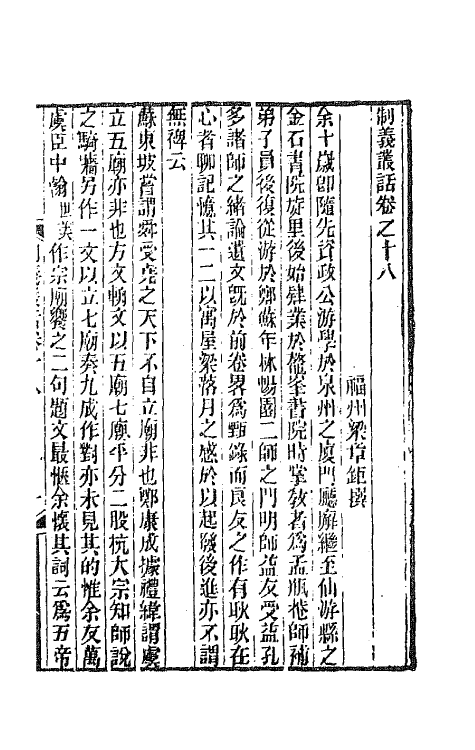 制義叢話卷之十八
福州梁章鉅撰
余十歲即隨先資政公游學於泉州之厦門廳廨繼至仙游縣之
金石書院旋里後始肄業於鰲峯書院時掌教者為孟瓶菴師補
弟子員後復從游於鄭蘇年林暢園二師之門明師益友受益孔
多諸師之緒論遺文旣於前卷畧為甄錄而良友之作有耿耿在
心者聊記憶其一二以寓屋梁落月之感於以起發後進亦不謂
無裨云
蘇東坡嘗謂舜受堯之天下不自立廟非也鄭康成據禮緯謂虞
立五廟亦非也方文輈文以五廟七廟平分二股杭大宗知師說
之騎牆另作一文以立七廟奏九成作對亦未見其的惟余友萬
虞臣中翰世美作宗廟饗之二句題文最愜余懷其詞云為五帝